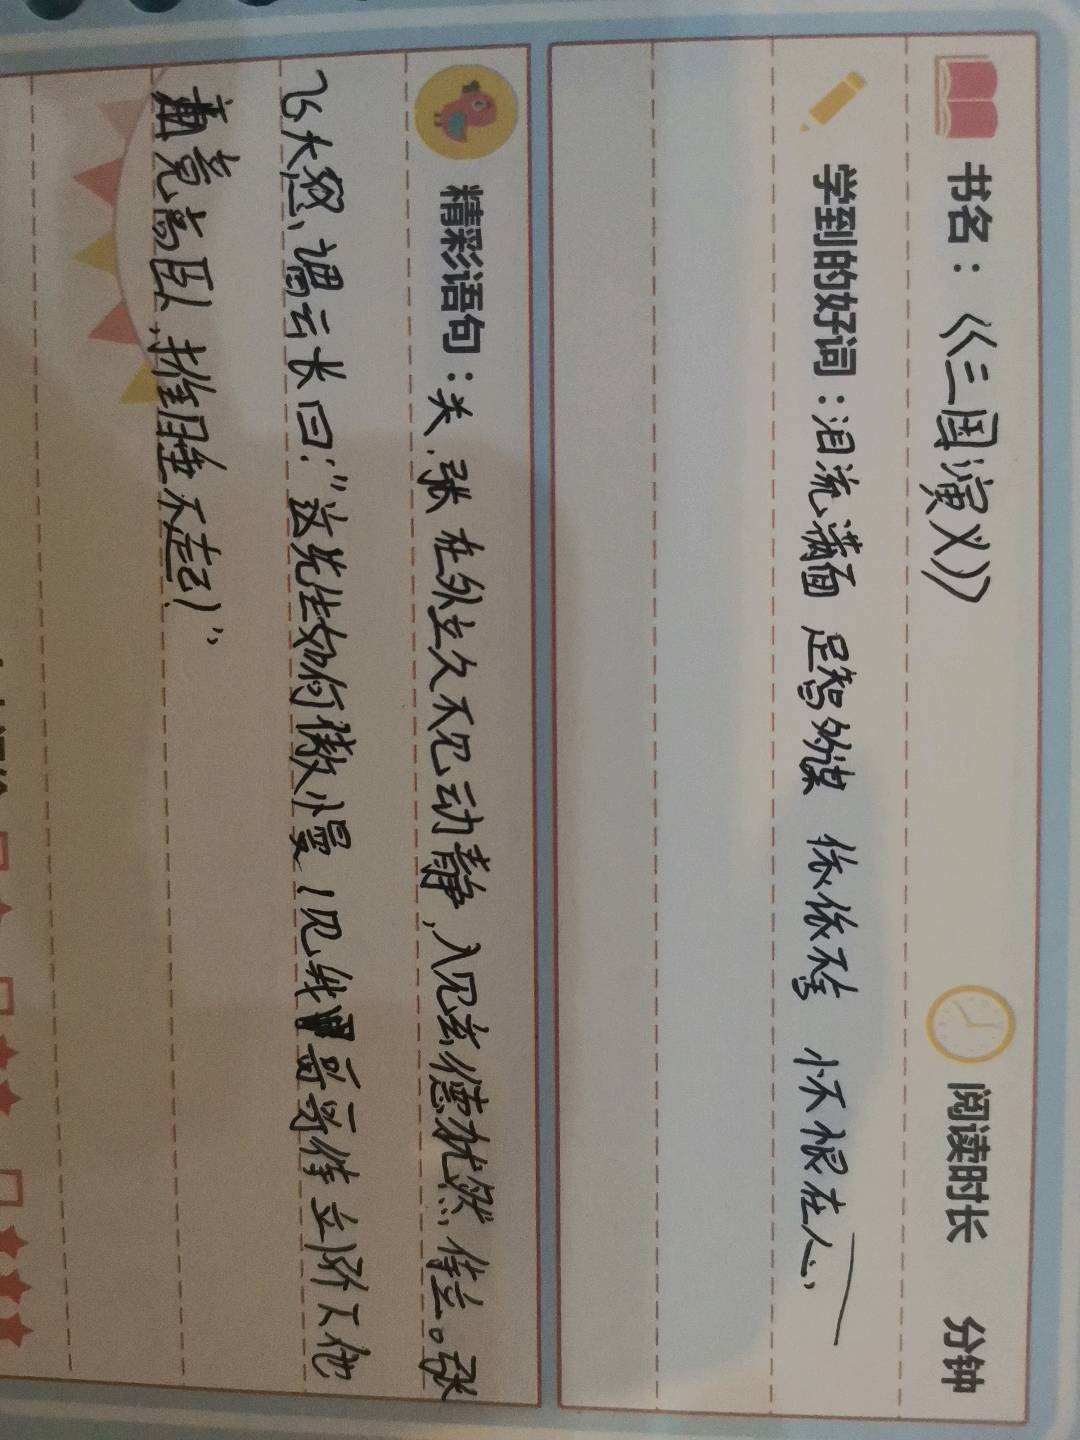 书名：《三国演义》 阅读时长 分钟
学到的好词：泪流满面 足智多谋 依依不舍 怀恨在心
精彩语句：关、张在外立久不见动静，入见玄德犹然侍立。张
飞大怒，谓云长曰：“这先生如何傲慢！见我哥哥侍立阶下他
竟高卧，推睡不起！”